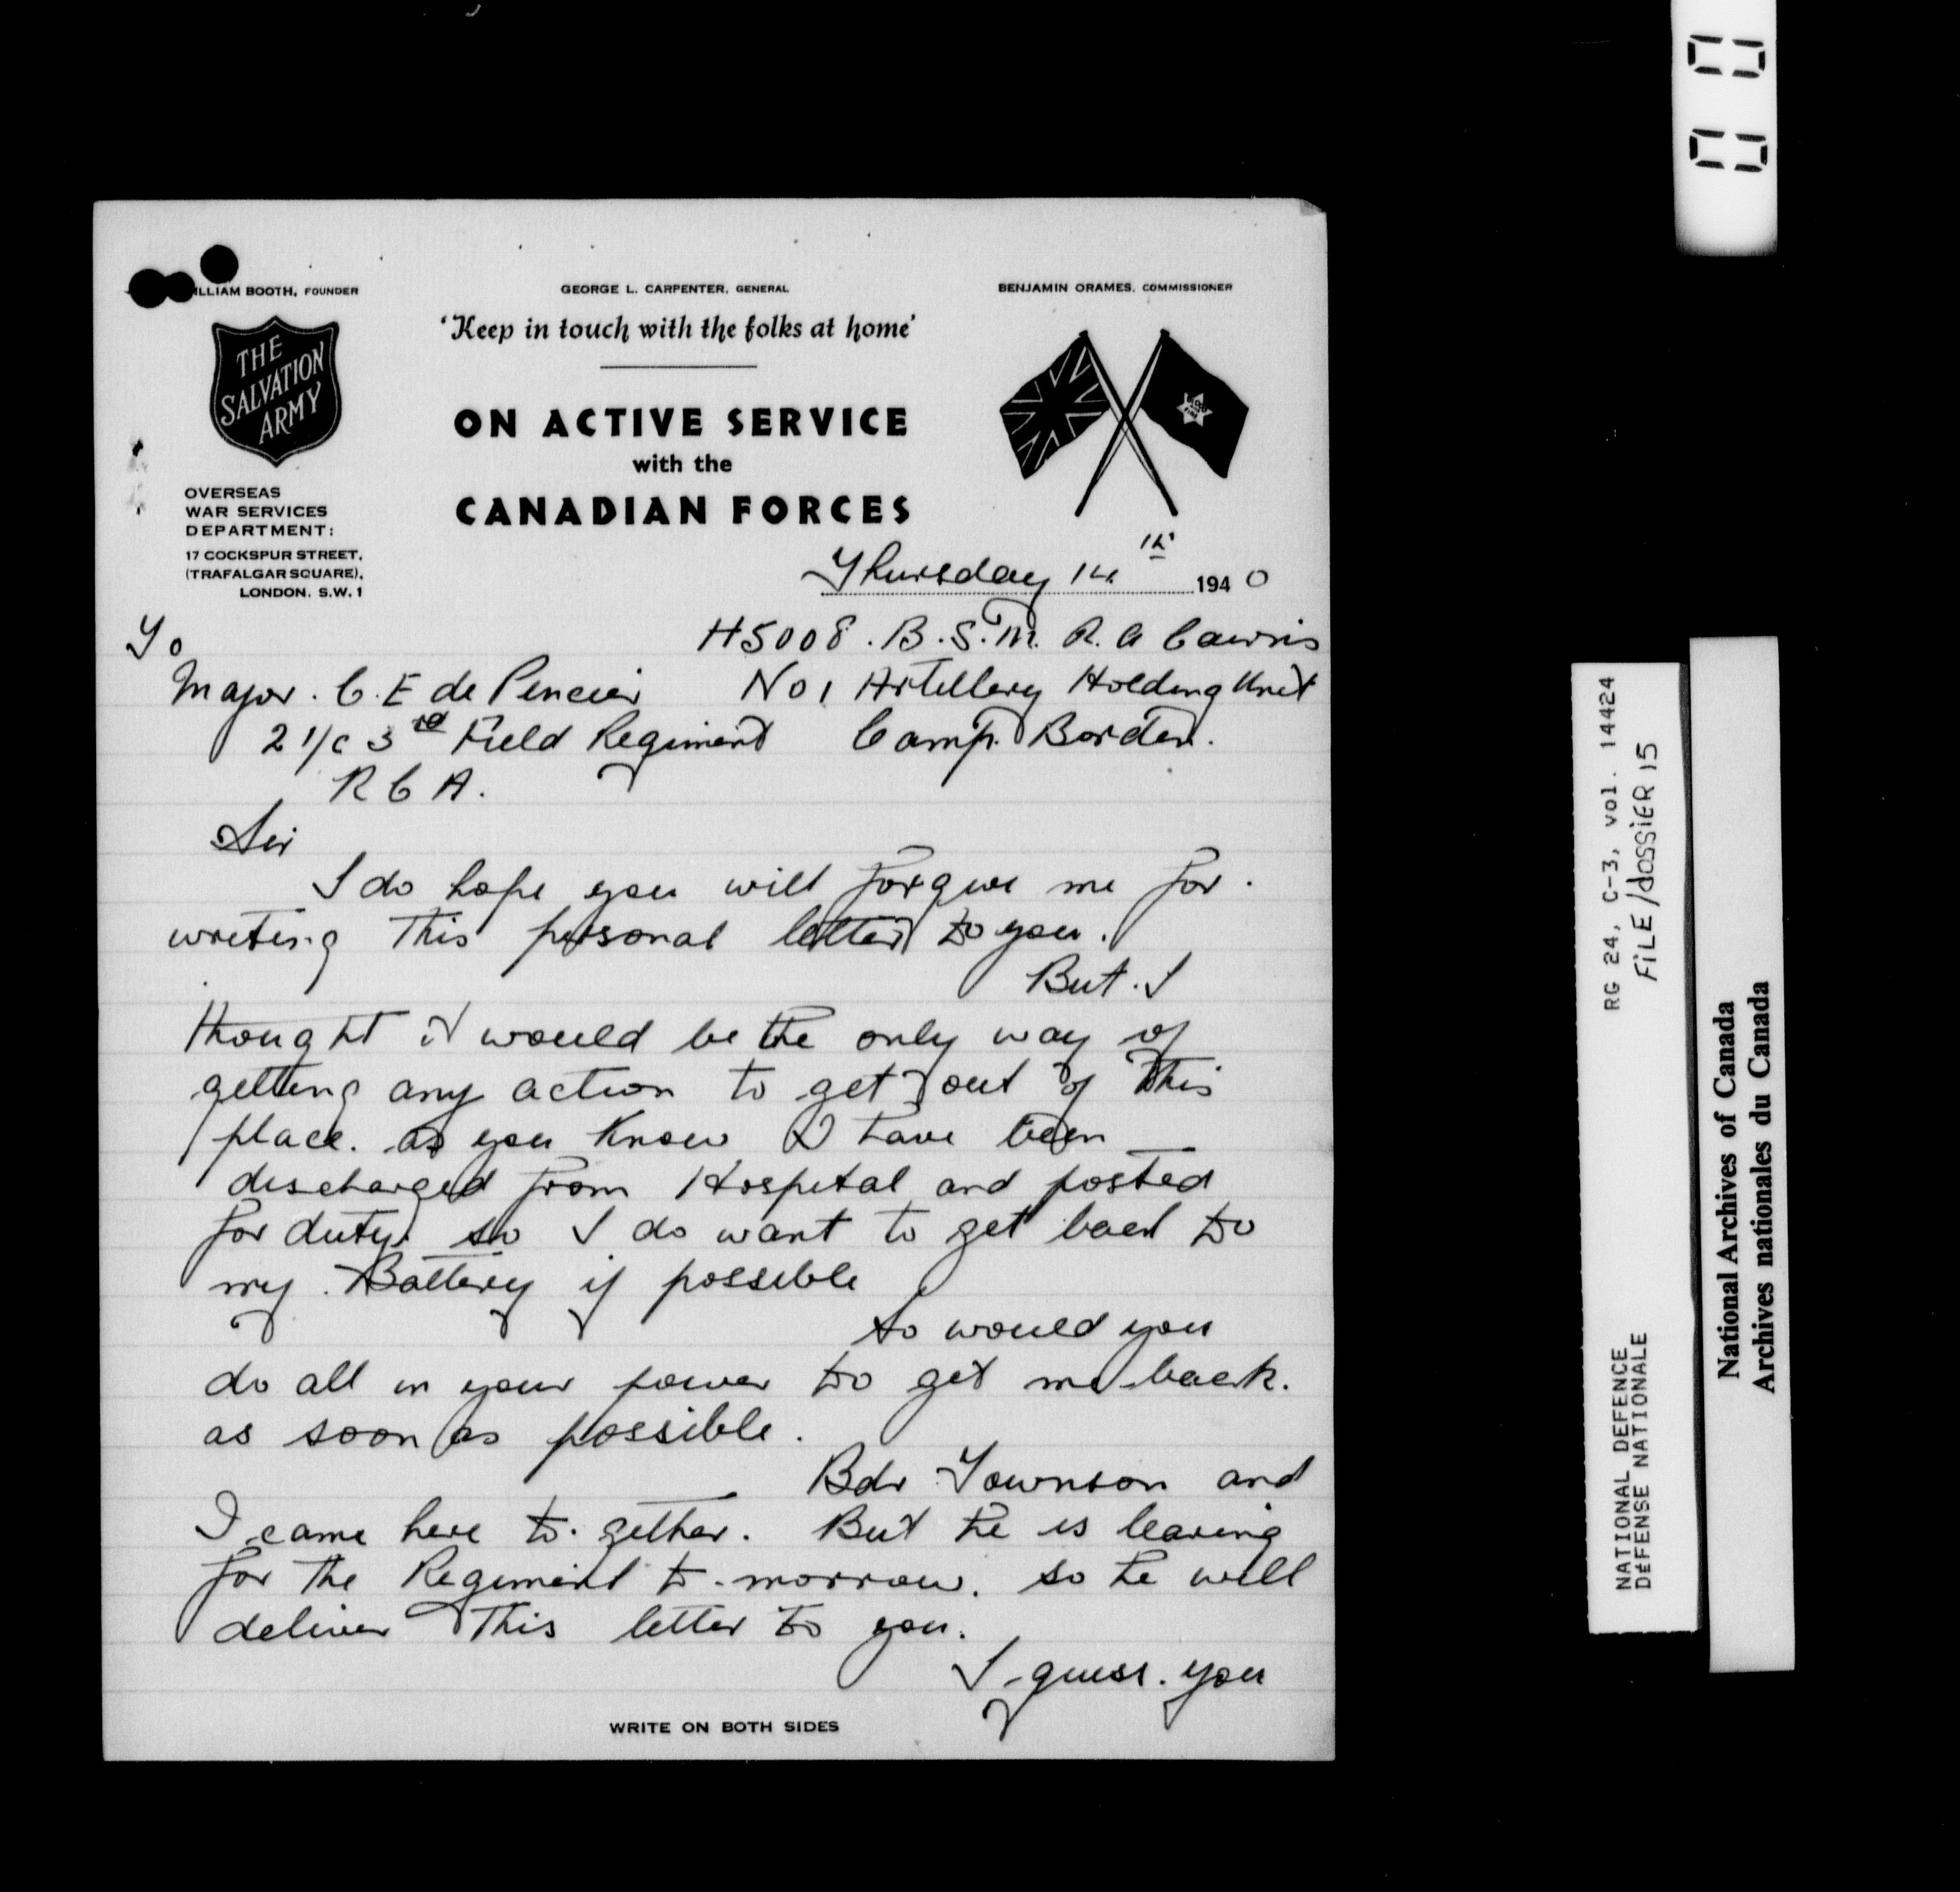 WILLIAM BOOTH, FOUNDER
GEORGE L. CARPENTER, GENERAL
BENJAMIN ORAMES, COMMISSIONER
'Keep in touch with the folks at home'
THE
SALVATION
ARMY
BLOOD
FIRE
ON ACTIVE SERVICE
with the
CANADIAN FORCES
OVERSEAS
WAR SERVICES
DEPARTMENT:
17 COCKSPUR STREET,
(TRAFALGAR SQUARE),
LONDON. S.W.1
Thursday 14th 1940
To
H5008. B.S.M. R. A
Major. C. E de Pencier
No 1 Artillery Holding Unit
2 1/c 3rd Field Regiment
Camp. Borden.
R C A.
Sir
I do hope you will forgive me for.
writing this personal letter to you.
But. I
thought it would be the only way of
getting any action to get out of this
place. as you know I have been
discharged from Hospital and posted
for duty. so I do want to get back to
my. Battery if possible
so would you
do all in your power to get me back.
as soon as possible.
Bdr Townson and
I came here to. gether. But he is leaving
for the Regiment to-morrow. so he will
deliver this letter to you.
I guess. you
WRITE ON BOTH SIDES
RG 24, C-3, vol. 14424
FILE/dOSSiER 15
NATIONAL DEFENCE
DéFENSE NATIONALE
National Archives of Canada
Archives nationales du Canada